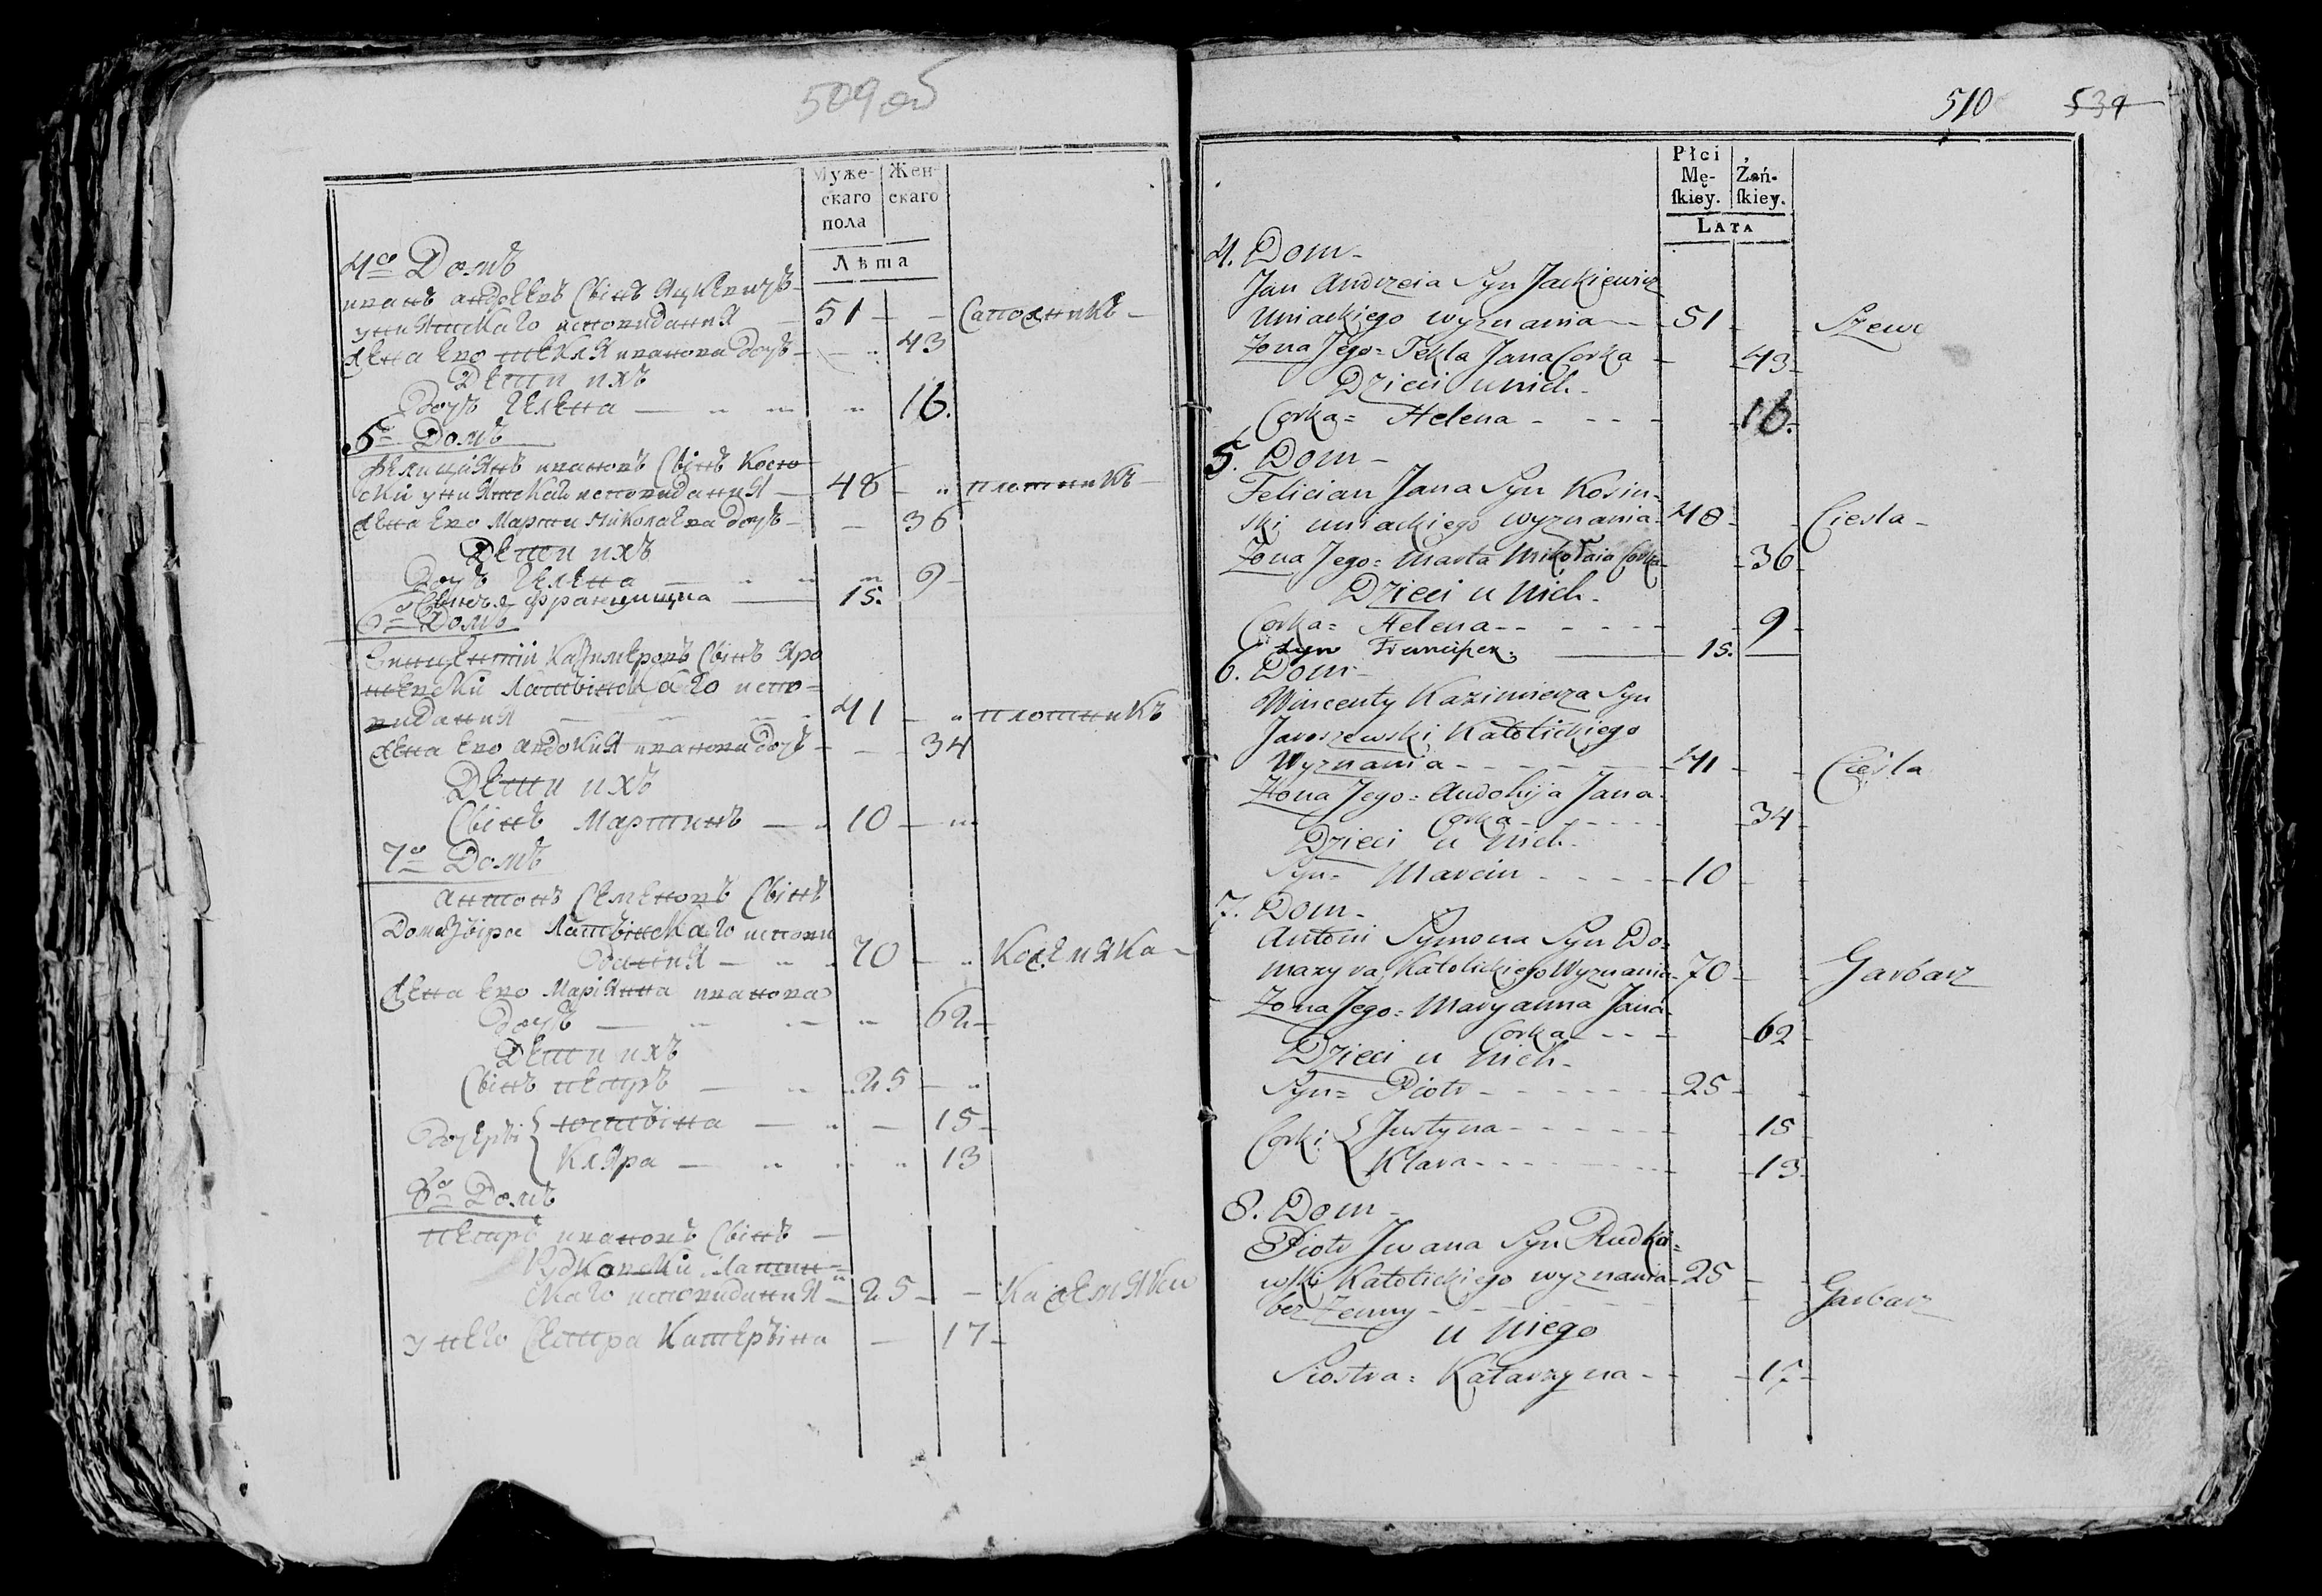 509 об
Муже-
скаго
пола
Жен-
скаго
Лѣта
4го Домъ
иванъ андреевъ Сынъ Яцкевичъ
униятскаго исповидания 51 Сапожникъ
Жена Ево текля иванова дочь 43
Дети ихъ
дочь Гелена 16.
5й Домъ
Фелициянъ ивановъ Сынъ Косин
ски униятскаго исповидания 48 плотникъ
Жена Ево Марта Николаева дочь 36
Дети ихъ
Дочь Гелена 9
Сынъ Францишка 15.
6й Домъ
Винцентий Казимеровъ Сынъ Яро
шевски Латынскаго испо=
видания 41 плотникъ
Жена Ево авдокия иванова дочь 34
Дети ихъ
Сынъ Мартинъ 10
7й Домъ
антонъ Семеновъ Сынъ
Домазыра Латынскаго испови
дания 70 Кожемяка
Жена Ево Мариянна иванова
Дочь 62
Дети ихъ
Сынъ петръ 25
Дочери { юстына 15
Кляра 13
8й Домъ
петръ ивановъ Сынъ
Рудковски Латин=
скаго исповидания 25 Кажемяки
у него Сестра Катерына 17
510 534
Płci
Mę-
ſkiey.
Żeń-
ſkiey.
Lata
4. Dom-
Jan Andrzeia Syn Jackiewicz
Uniackiego wyznania 51 Szewc
Żona Jego= Tekla Jana Corka 43
Dzieci u nich
Corka= Helena 16.
5. Dom-
Felician Jana Syn Kosin-
ski uniackiego wyznania 48 Ciesla
Żona Jego= Marta Mikołaia Corka 36
Dzieci u Nich-
Corka= Helena 9
Syn Franciszek. 15.
6. Dom-
Wincenty Kazimierza Syn
Jaroszewski Katolickiego
Wyznania 41 Ciesla
Żona Jego= Audokija Jana
Corka 34
Dzieci u Nich
Syn= Marcin 10
7. Dom-
Antoni Symona Syn Do=
mazyra, Katolickiego Wyznania 70 Garbarz
Żona Jego= Maryanna Jana
Corka 62
Dzieci u Nich-
Syn= Piotr 25
Corki { Justyna 15
Klara 13
8. Dom-
Piotr Jwana Syn Rudko=
wski Katolickiego wyznania 25 Garbarz
bez Zenny
u Niego
Siostra= Katarzyna 17